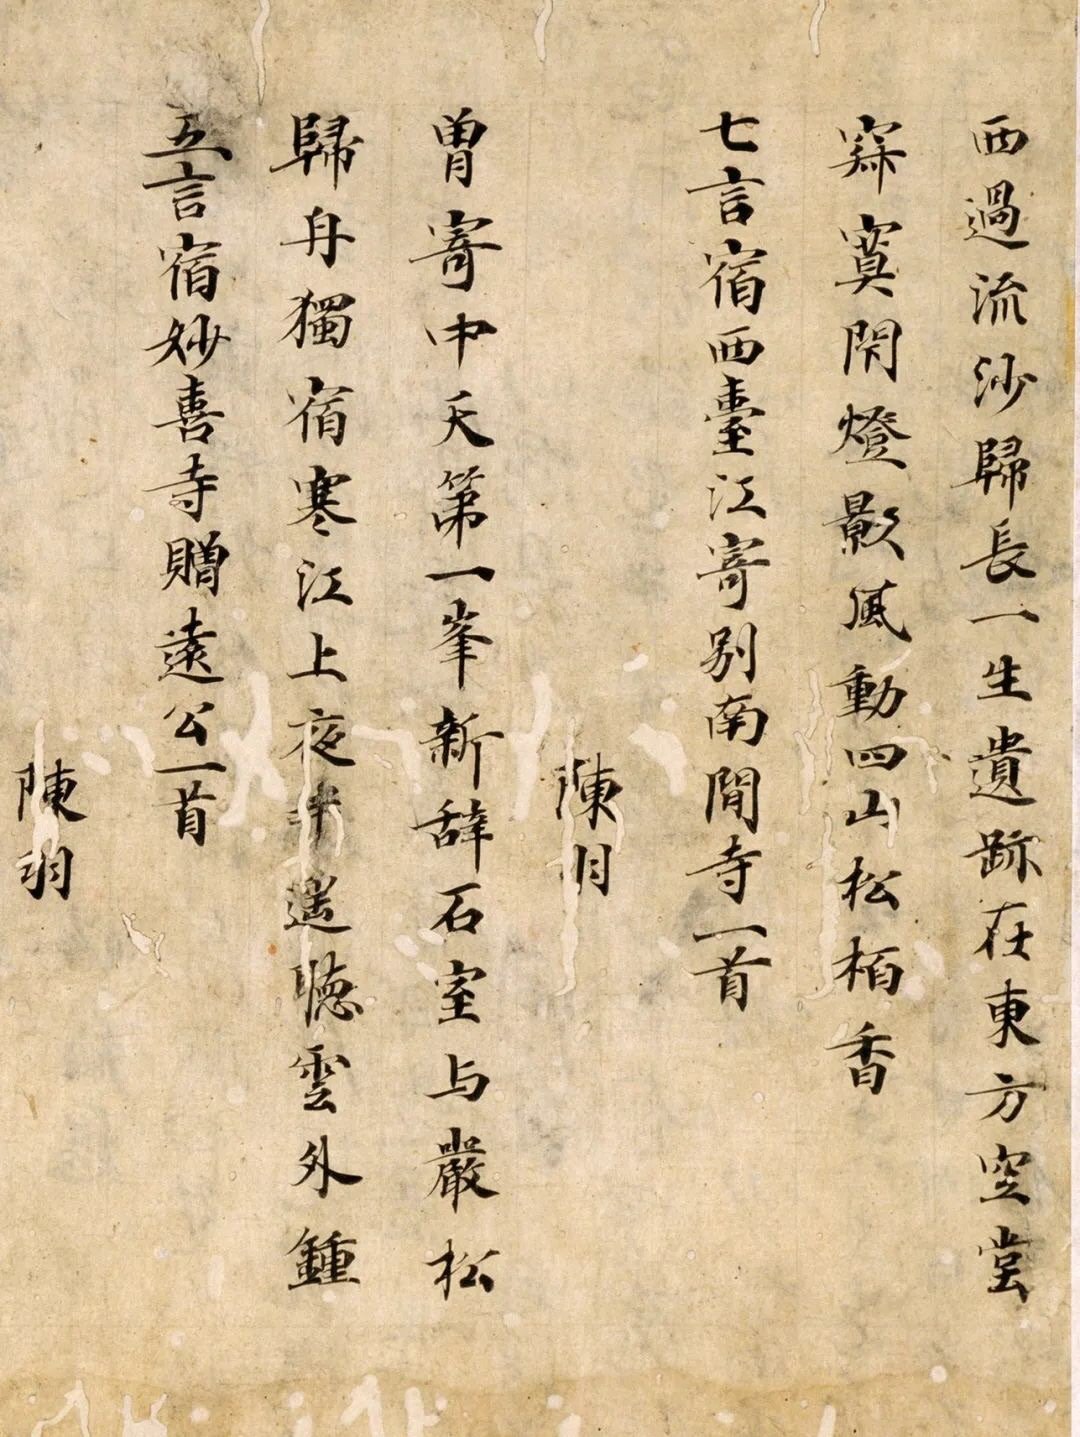 西過流沙歸長一生遺跡在東方空堂
寂寞閇燈影風動四山松栢香
七言宿西臺江寄别南閒寺一首
陳羽
曽寄中天第一峯新辞石室与巖松
歸舟獨宿寒江上夜半遥聴雲外鍾
五言宿妙喜寺贈遠公一首
陳羽